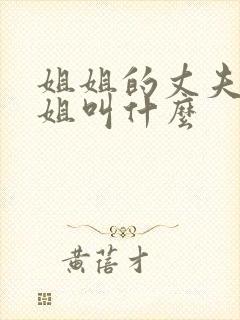 姐姐的丈夫
姐叫什麼
黄蓓才